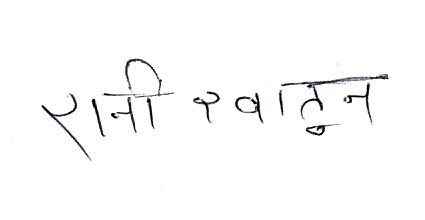 रानी खातून